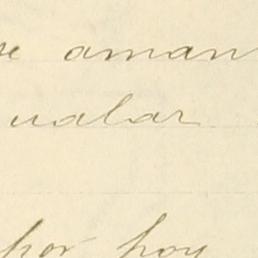 se aman
ualar
por hoy